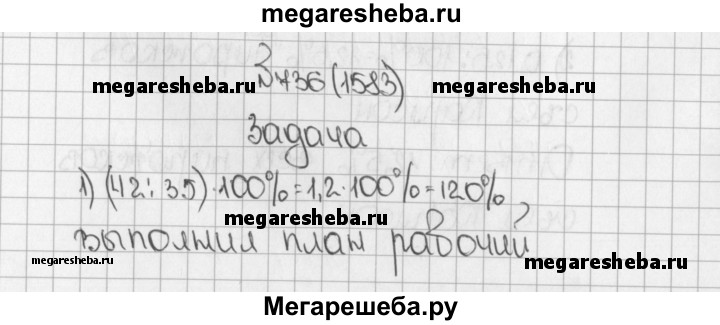 megaresheba.ru
№736(1583)
megaresheba.ru megaresheba.ru
Задача
1) (42:35)·100%=1,2·100%=120%
megaresheba.ru
выполнил план рабочий
megaresheba.ru megaresheba.ru
Мегарешеба.ру